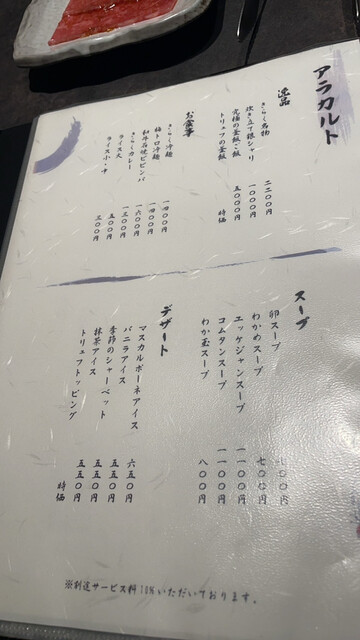 アラカルト
逸品
きらく名物 二二〇〇円
炊き立て銀シャリ 一〇〇〇円
究極の釜飯 五〇〇〇円
トリュフの釜飯 時価
お食事
きらく冷麺 一四〇〇円
梅トロ冷麺 一四〇〇円
和牛石焼ビビンバ 一六〇〇円
きらくカレー 一三〇〇円
ライス大 五〇〇円
ライス小・中 三〇〇円
スープ
卵スープ 七〇〇円
わかめスープ 七〇〇円
ユッケジャンスープ 一一〇〇円
コムタンスープ 一一〇〇円
わか玉スープ 八〇〇円
デザート
マスカルポーネアイス 六五〇円
バニラアイス 五五〇円
季節のシャーベット 五五〇円
抹茶アイス 五五〇円
トリュフトッピング 時価
※別途サービス料10%いただいております。